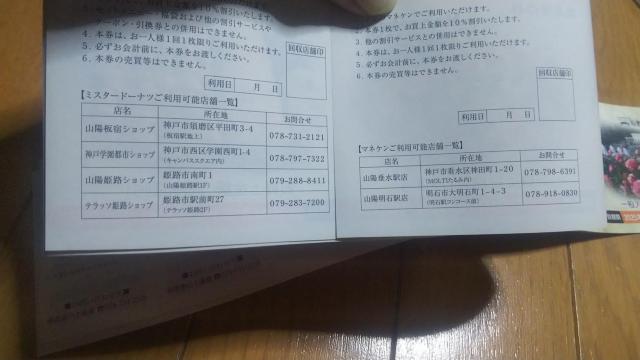 本券1枚で、お買上金額を10%割引いたします。
福袋および他の割引サービスや
クーポン・引換券との併用はできません。
4. 本券は、お一人様1回1枚限りご利用いただけます。
5. 必ずお会計前に、本券をお渡しください。
6. 本券の売買等はできません。
回収店舗印
利用日 月 日
【ミスタードーナツご利用可能店舗一覧】
店名 所在地 お問合せ
山陽板宿ショップ 神戸市須磨区平田町3-4 078-731-2121
(板宿駅地上)
神戸学園都市ショップ 神戸市西区学園西町1-4 078-797-7322
(キャンパススクエア内)
山陽姫路ショップ 姫路市南町1 079-288-8411
(山陽姫路駅1F)
テラッソ姫路ショップ 姫路市駅前町27 079-283-7200
(テラッソ姫路2F)
マネケンでご利用いただけます。
2. 本券1枚で、お買上金額を10%割引いたします。
3. 他の割引サービスとの併用はできません。
4. 本券は、お一人様1回1枚限りご利用いただけます。
5. 必ずお会計前に、本券をお渡しください。
6. 本券の売買等はできません。
回収店舗印
利用日 月 日
【マネケンご利用可能店舗一覧】
店名 所在地 お問合せ
山陽垂水駅店 神戸市垂水区神田町1-20 078-798-6391
(MOLTIたるみ内)
山陽明石駅店 明石市大明石町1-4-3 078-918-0830
(明石駅フンコース前)